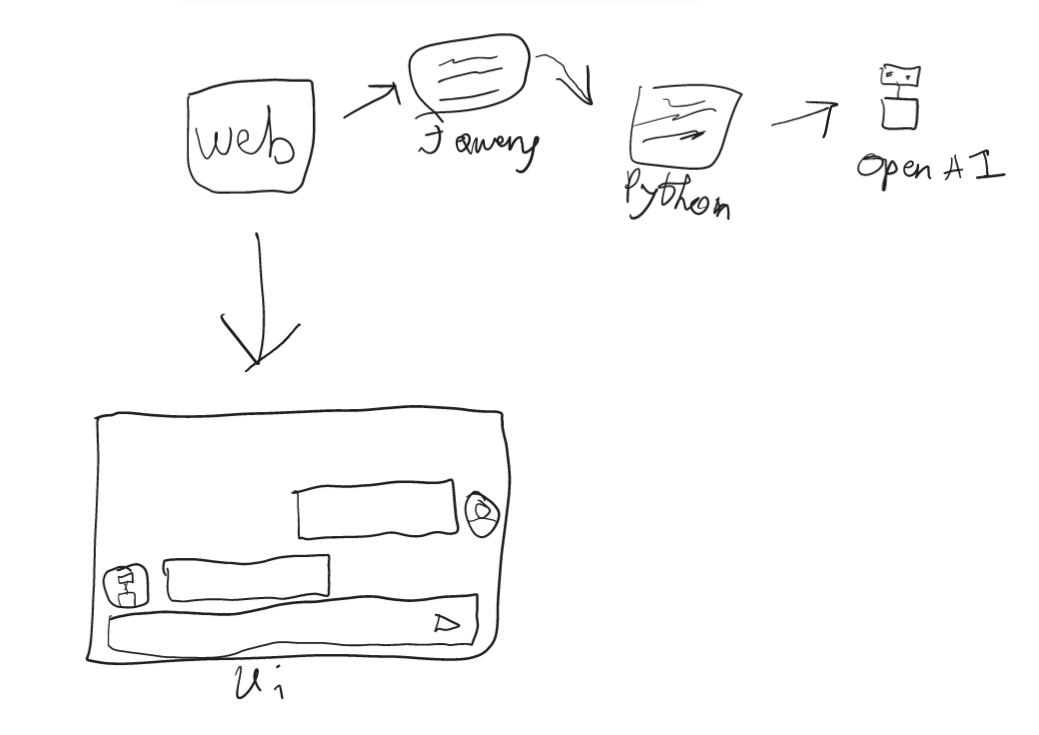 web
JQuery
Python
Open AI
Ui